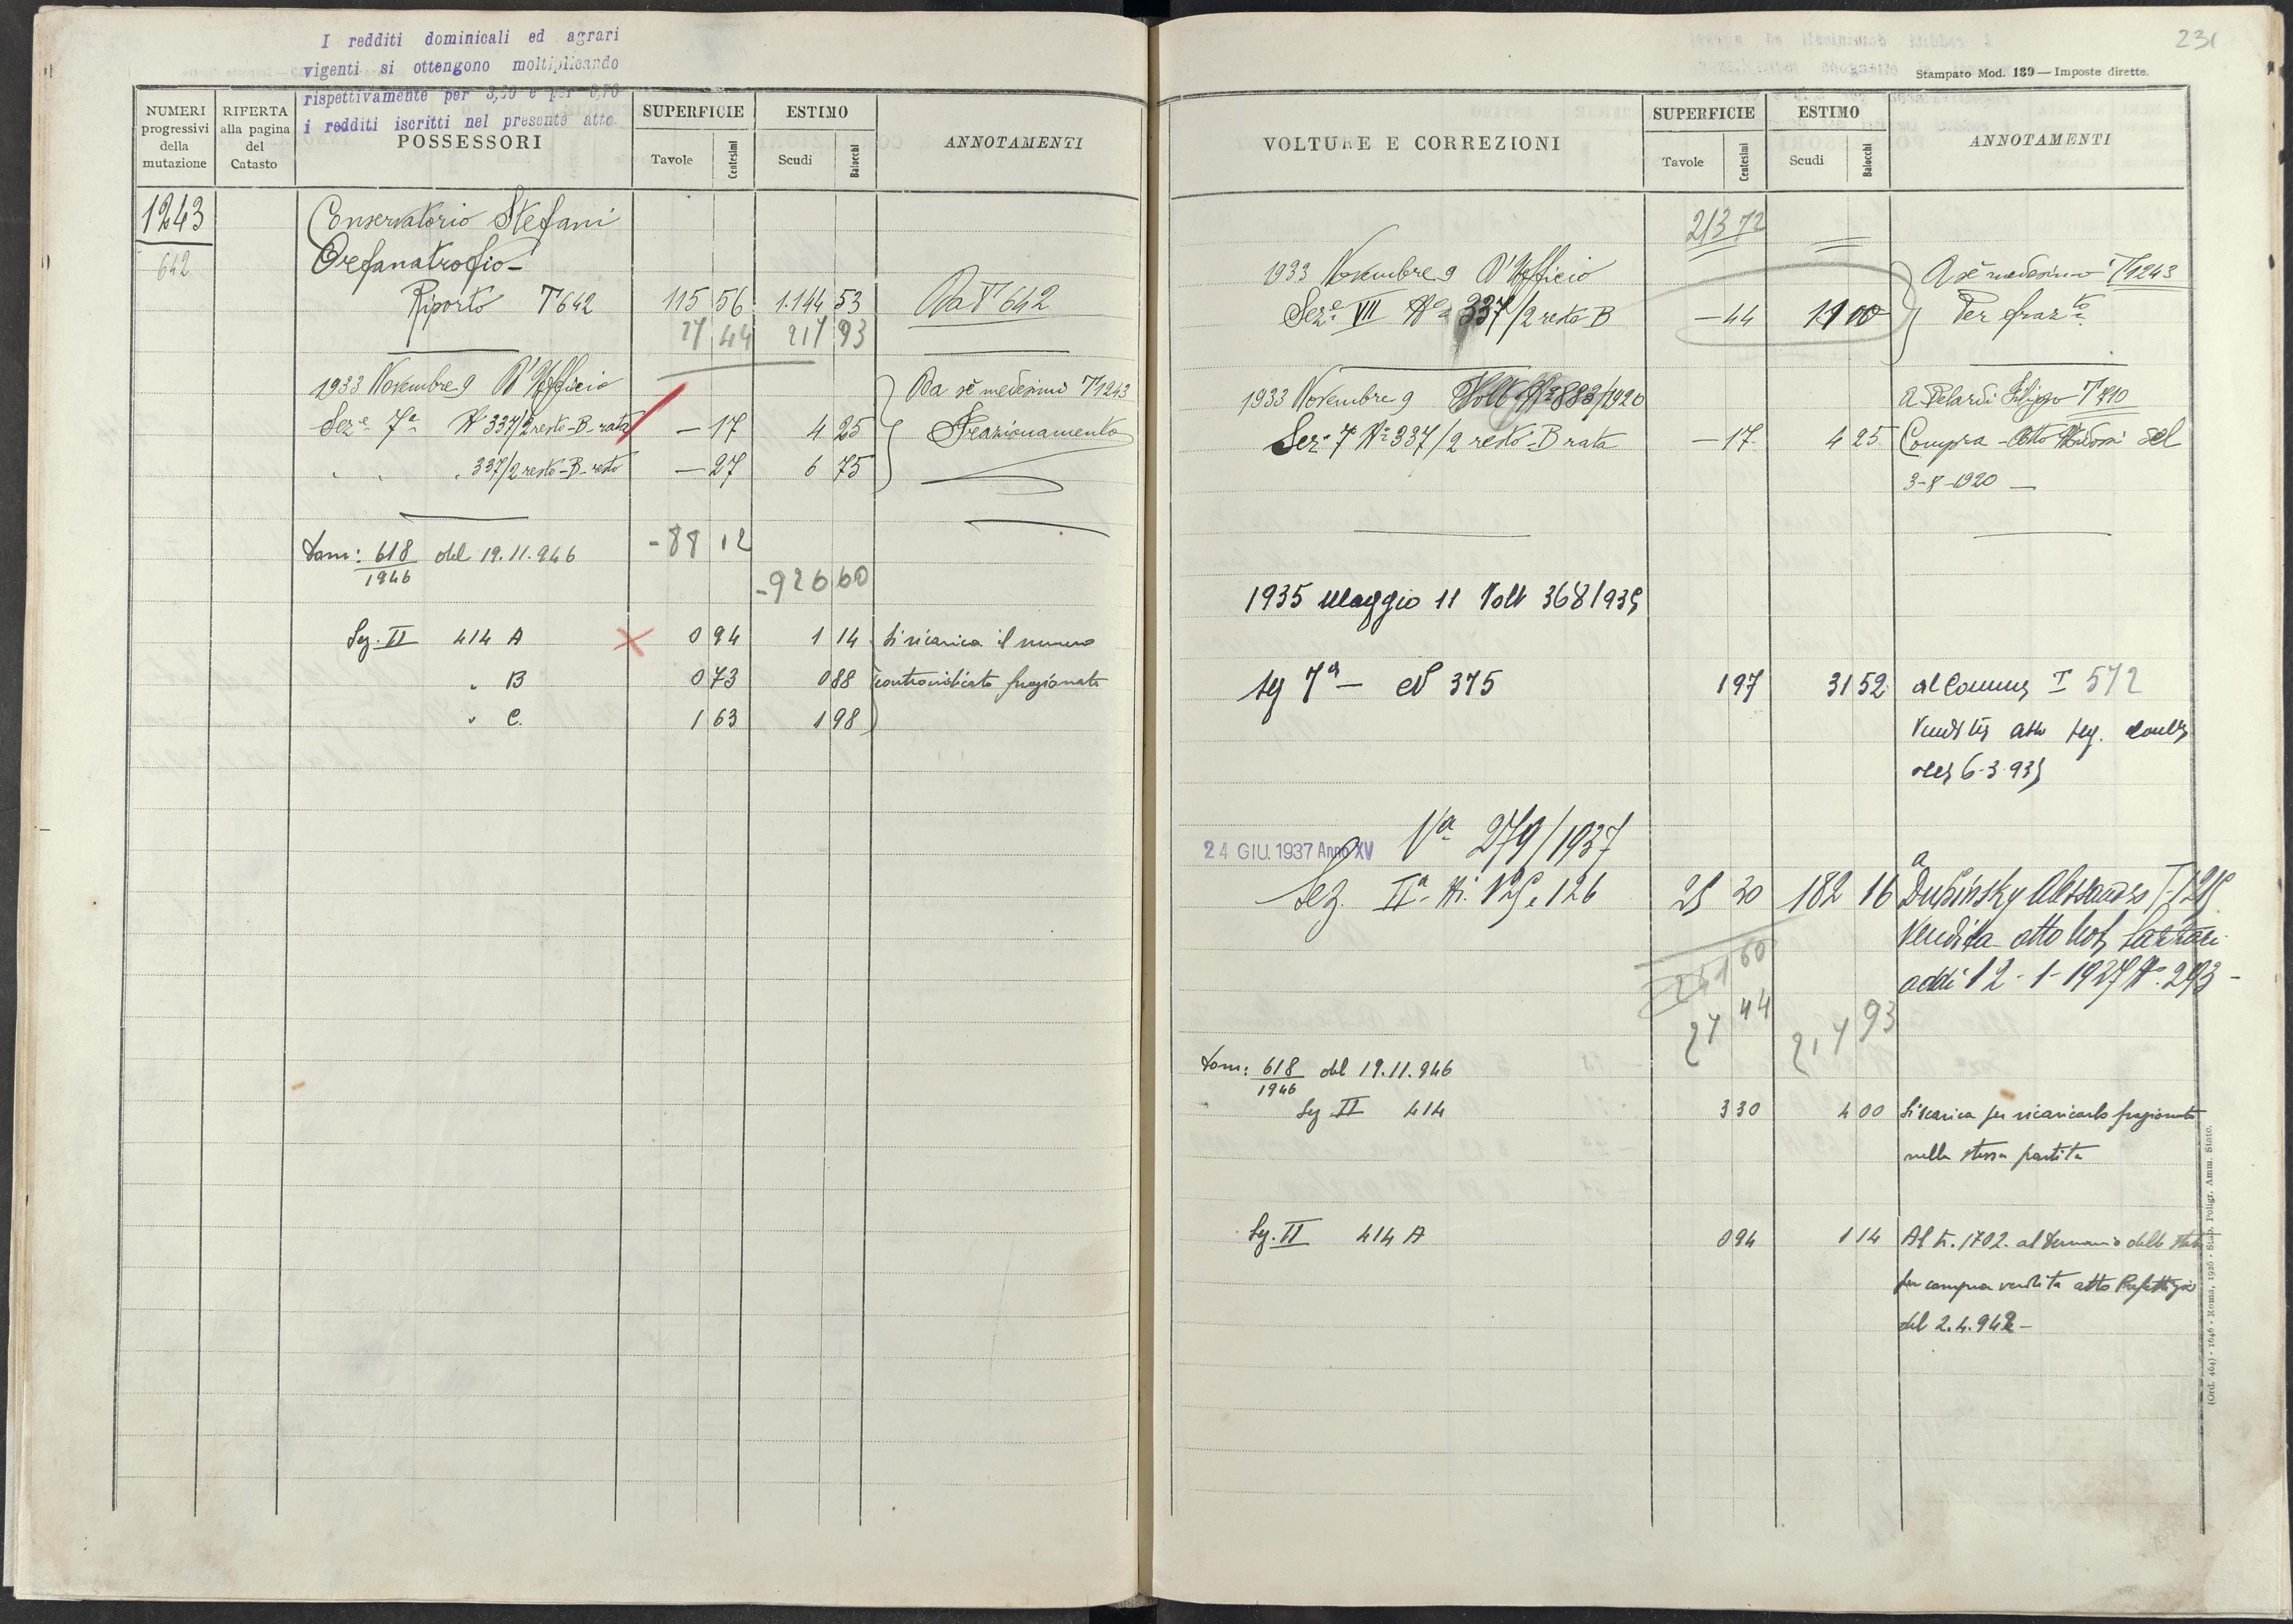 I redditi dominicali ed agrari
vigenti si ottengono moltiplicando
rispettivamente per 3,50 e per
i redditi iscritti nel presente atto.
NUMERI progressivi della mutazione
RIFERTA alla pagina del Catasto
POSSESSORI
SUPERFICIE
Tavole Centesimi
ESTIMO
Scudi Baiocchi
ANNOTAMENTI
1243
642
Conservatorio Stefani
Orefanatrofio-
Riporto T 642 115 56 1.144 53 Da T 642
27 44 217 93
1933 Novembre 9 D'Ufficio Da sè medesimo T 1243
Seze 7a N 337/2 resto-B-rata -17 4 25 Frazionamento
" " " 337/2 resto-B-resto -27 6 75
Dom: 618/1946 del 19.11.946 -88 12
-926 60
Sez. II 414 A 0 94 1 14 Si ricarica il numero
" B 0 73 0 88 controindicato frazionato
" C. 1 63 1 98
231
Stampato Mod. 139 — Imposte dirette.
VOLTURE E CORREZIONI
SUPERFICIE
Tavole Centesimi
ESTIMO
Scudi Baiocchi
ANNOTAMENTI
213 72
1933 Novembre 9 D'Ufficio A sè medesimo T 1243
Seze VII No 337/2 resto B -44 11 00 Per frazto
1933 Novembre 9 Volt No 883/1920 A Filippo T 710
Seze 7a No 337/2 resto-B rata -17 4 25 Compra - Atto del
3-8-1920
1935 Maggio 11 Volt 368/935
Sez 7a - N 375 1 97 31 52 al Comune T 572
Vendita atto Seg.
del 6-3-935
24 GIU. 1937 Anno XV Va 279/1937
Sez. IIa N. 125 e 126 25 20 182 16 a Dubinsky Alessandro T-1215
Vendita atto Not
addi 12-1-1937 No. 293-
251 60
27 44 217 93
Dom: 618/1946 del 19.11.946
Sez II 414 3 30 4 00 Si scarica per ricaricarlo frazionato
nella stessa partita
Sez. II 414 A 0 94 1 14 Al T. 1702. al Demanio dello Stato
per compra vendita atto Prefettizio
del 2.4.942-
(Ord. 464) - 1646 - Roma, 1926 - Stab. Poligr. Amm. Stato.